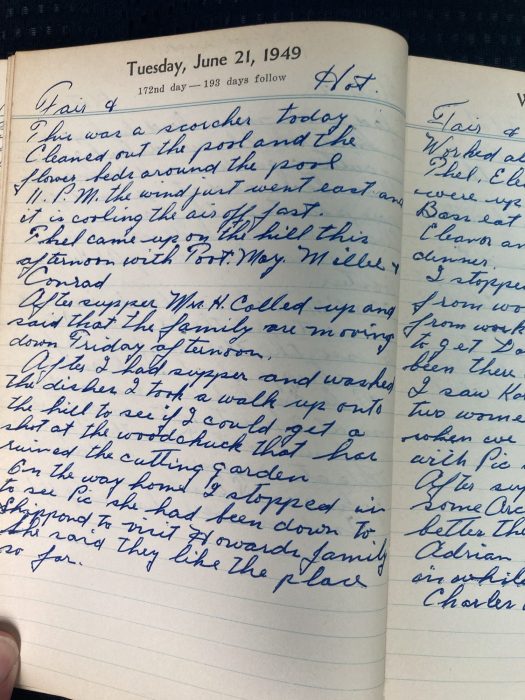 Tuesday, June 21, 1949
172nd day — 193 days follow
Fair & Hot.
This was a scorcher today
Cleaned out the pool and the
flower beds around the pool
11. P.M. the wind just went east and
it is cooling the air off fast.
Thel came up on the hill this
afternoon with Poot. May. Millie &
Conrad
After supper Mrs. H. Called up and
said that the family are moving
down Friday afternoon.
After I had supper and washed
the dishes I took a walk up onto
the hill to see if I could get a
shot at the woodchuck that has
ruined the cutting garden
On the way home I stopped in
to see Pic she had been down to
to visit Howards family
She said they like the place
so far.
W
Fair &
Worked
Thel. Ele
were up
Bass eat
Eleanor an
dinner.
I stoppe
from wo
from work
to get Da
been there
I saw Ka
two wome
when we
with Pic
After sup
some
better the
Adrian
in while
Charles